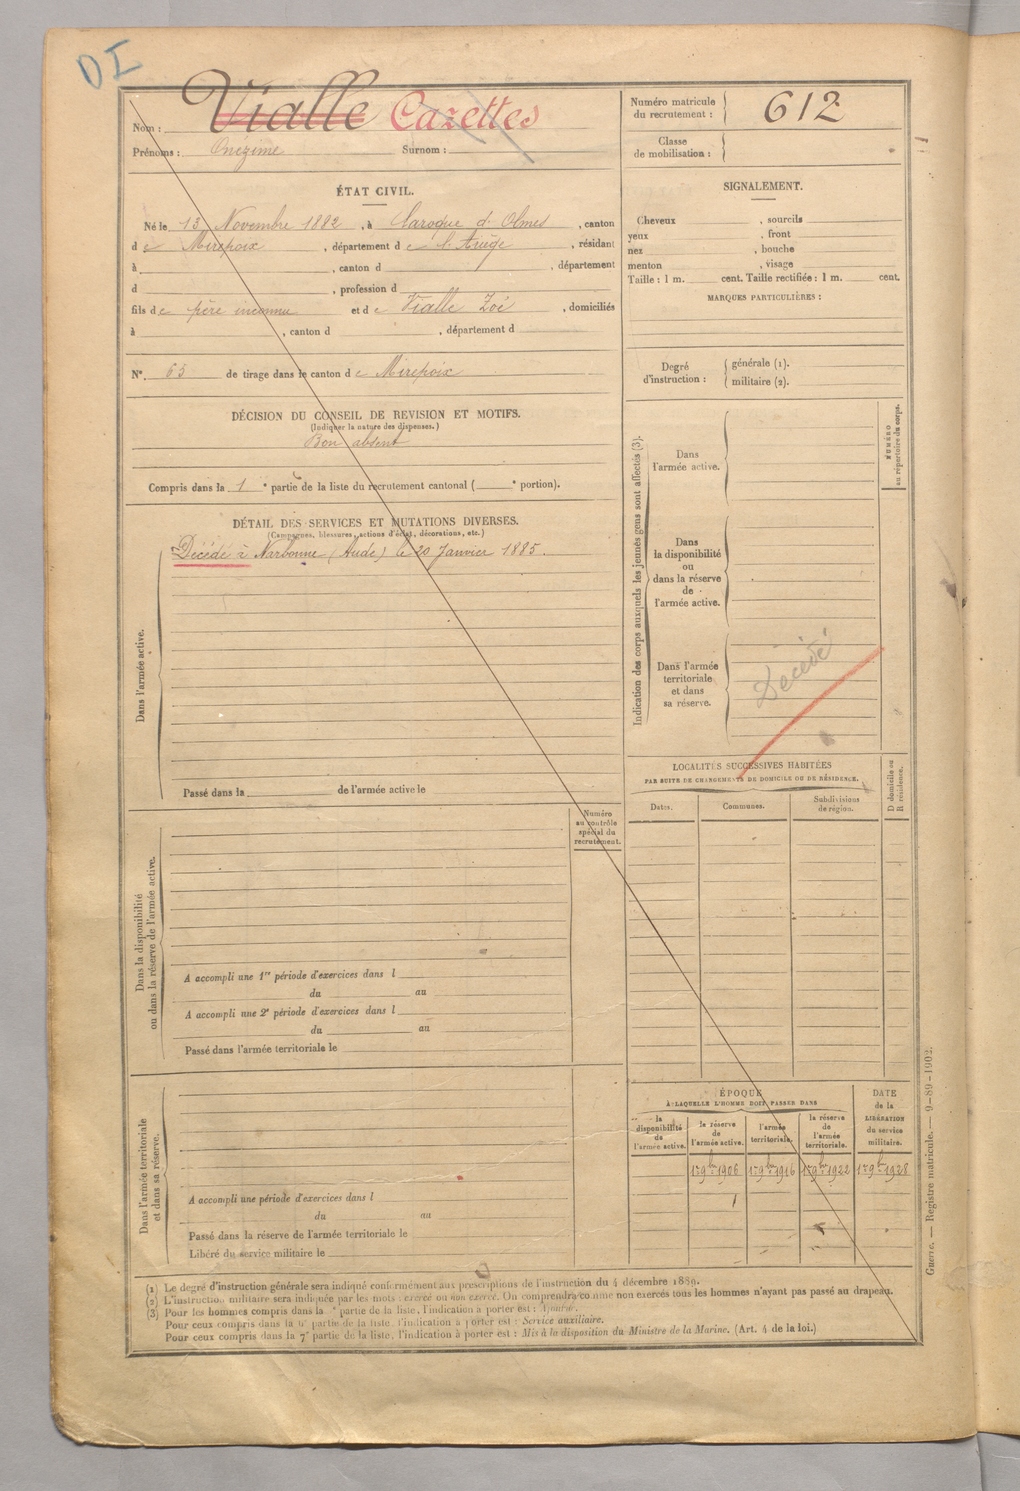 DI
Nom : Vialle Cazettes
Prénoms : Onézime Surnom :
Numéro matricule du recrutement : 612
Classe de mobilisation :
ÉTAT CIVIL.
Né le 13 Novembre 1882, à Laroque d'Olmes, canton
de Mirepoix, département de l'Ariège, résidant
à , canton d , département
d , profession d
fils de père inconnu et de Vialle Zoé, domiciliés
à , canton d , département d
N° 65 de tirage dans le canton de Mirepoix
DÉCISION DU CONSEIL DE REVISION ET MOTIFS.
(Indiquer la nature des dispenses.)
Bon absent
Compris dans la 1e partie de la liste du recrutement cantonal ( e portion).
DÉTAIL DES SERVICES ET MUTATIONS DIVERSES.
(Campagnes, blessures, actions d'éclat, décorations, etc.)
Décédé à Narbonne (Aude) le 20 Janvier 1885.
Dans l'armée active.
Passé dans la de l'armée active le
Numéro
au contrôle
spécial du
recrutement.
Dans la disponibilité
ou dans la réserve de l'armée active.
A accompli une 1re période d'exercices dans l
du au
A accompli une 2e période d'exercices dans l
du au
Passé dans l'armée territoriale le
Dans l'armée territoriale
et dans sa réserve.
A accompli une période d'exercices dans l
du au
Passé dans la réserve de l'armée territoriale le
Libéré du service militaire le
SIGNALEMENT.
Cheveux , sourcils
yeux , front
nez , bouche
menton , visage
Taille : 1 m. cent. Taille rectifiée : 1 m. cent.
MARQUES PARTICULIÈRES :
Degré d'instruction :
générale (1).
militaire (2).
Indication des corps auxquels les jeunes gens sont affectés (3).
NUMÉRO
au répertoire du corps.
Dans
l'armée active.
Dans
la disponibilité
ou
dans la réserve
de
l'armée active.
Dans l'armée
territoriale
et dans
sa réserve.
Décédé
LOCALITÉS SUCCESSIVES HABITÉES
PAR SUITE DE CHANGEMENTS DE DOMICILE OU DE RÉSIDENCE.
D domicile ou
R résidence.
Dates.
Communes.
Subdivisions
de région.
ÉPOQUE
À LAQUELLE L'HOMME DOIT PASSER DANS
la
disponibilité
de
l'armée active.
la réserve
de
l'armée active.
l'armée
territoriale.
la réserve
de
l'armée
territoriale.
DATE
de la
LIBÉRATION
du service
militaire.
1er 9bre 1906 1er 9bre 1916 1er 9bre 1922 1er 9bre 1928
(1) Le degré d'instruction générale sera indiqué conformément aux prescriptions de l'instruction du 4 décembre 1889.
(2) L'instruction militaire sera indiquée par les mots : exercé ou non exercé. On comprendra comme non exercés tous les hommes n'ayant pas passé au drapeau.
(3) Pour les hommes compris dans la e partie de la liste, l'indication à porter est : Ajourné.
Pour ceux compris dans la 6e partie de la liste, l'indication à porter est : Service auxiliaire.
Pour ceux compris dans la 7e partie de la liste, l'indication à porter est : Mis à la disposition du Ministre de la Marine. (Art. 4 de la loi.)
Guerre. — Registre matricule. — 9-89-1902.